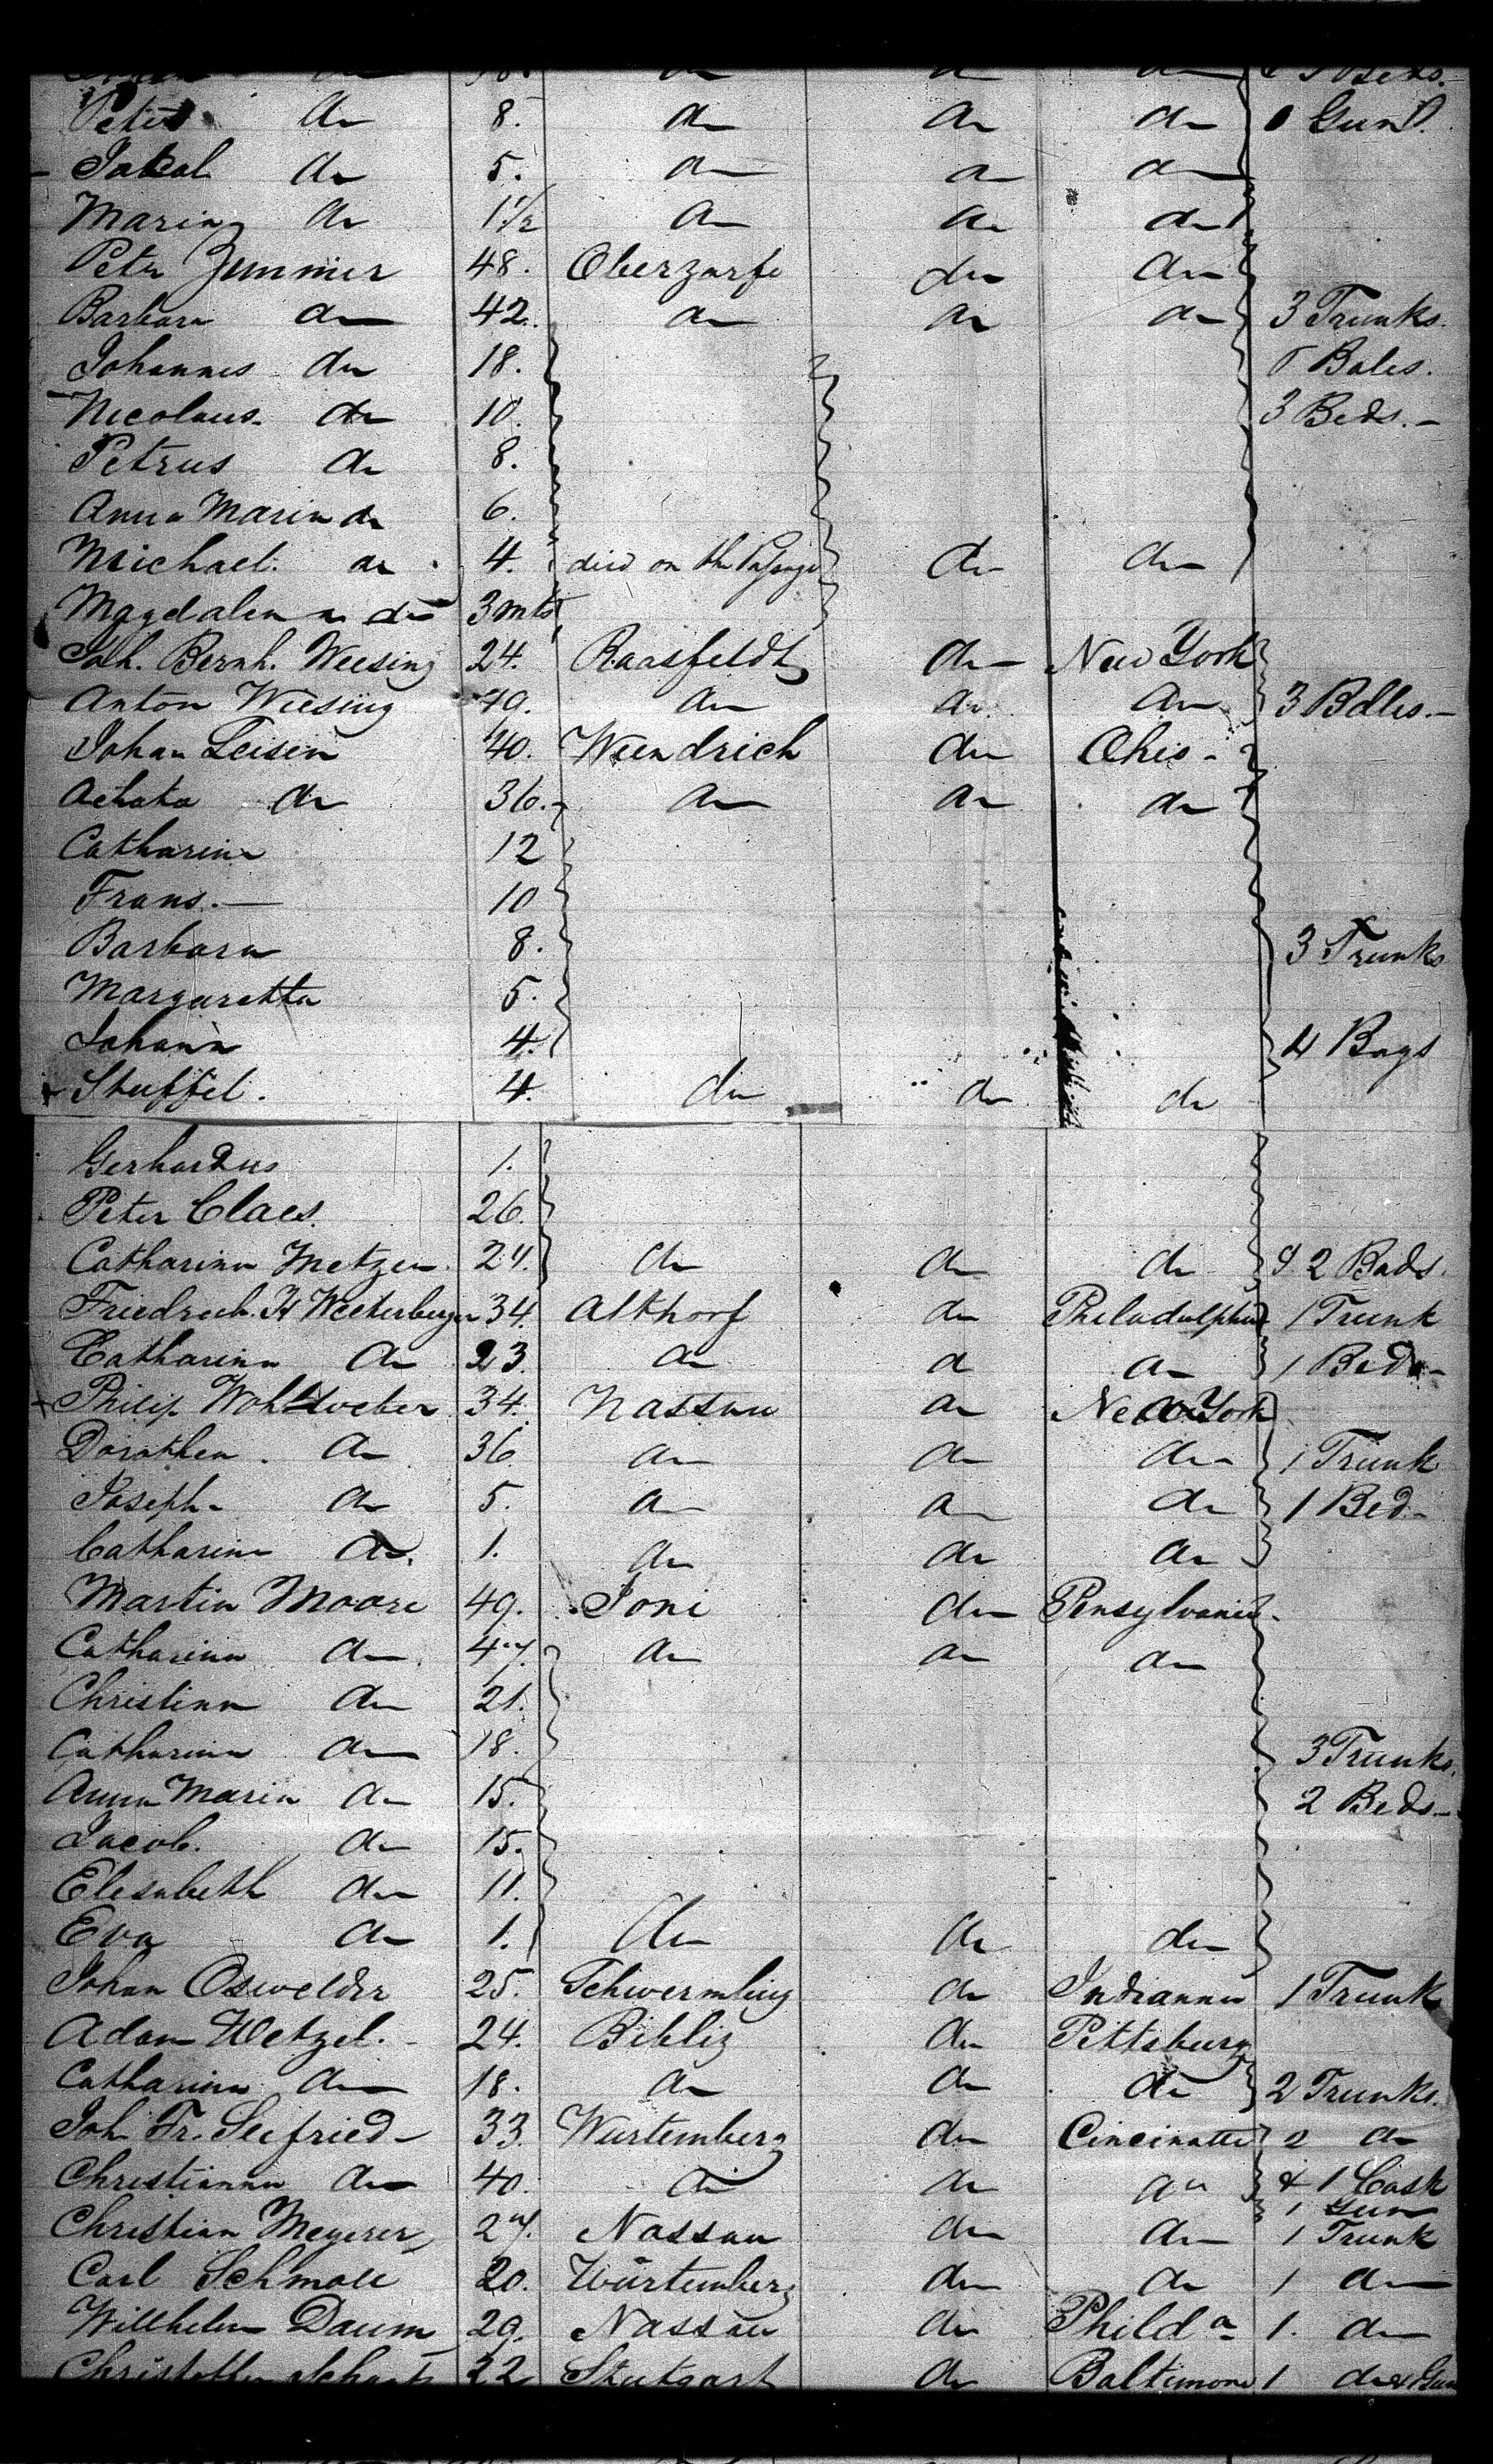 Peter do 8. do do do 1 Gun.
Jakob do 5. do do do
Maria do 1 1/2 do do do
Peter Zimmer 48. Oberzerfe do do
Barbara do 42. do do do 3 Trunks.
Johannes do 18. Bales.
Nicolaus do 10. 3 Beds.
Petrus do 8.
Anna Maria do 6.
Michael. do 4. died on the Passage do do
Magdalena do 3 mts
Joh. Bernh. Weesing 24. Raasfeldt do New York
Anton Wiesing 49. do do do 3 Bdles.
Johan Leisen 40. Weendrich do Ohio
Achata do 36. do do do
Catharina 12
Frans. 10
Barbara 8. 3 Trunks
Margaretta 5.
Johann 4. 4 Bags
Stuffel. 4. do do do
Gerhardus 1.
Peter Claes. 26.
Catharina Metzen. 24. do do do & 2 Beds.
Friedrich. H Weckerberger 34. Althorf do Philadelphia 1 Trunk
Catharina do 23. do do do 1 Bed
Philip Wohlweber 34. Nassau do New York
Dorothea. do 36 do do do 1 Trunk
Joseph do 5. do do do 1 Bed
Catharina do. 1. do do do
Martin Moore 49. Joni do Pensylvania
Catharina do 47. do do do
Christina do 21.
Catharina do 18. 3 Trunks.
Anna Maria do 15. 2 Beds
Jacob. do 15.
Elesabeth do 11.
Eva do 1. do do do
Johan Oswelder 25. Schwermling do Indianna 1 Trunk
Adam Wetzel. 24. Bibliz do Pittsburg
Catharina do 18. do do do 2 Trunks.
Joh Fr. Seefried 33. Wurtemberg do Cincinatti 2 do
Christianna do 40. do do do & 1 Cask
1 Gun
Christian Meyerer 27. Nassau do do 1 Trunk
Carl Schmoll 20. Würtemberg do do 1 do
Willhelm Daum 29. Nassau do Phild a 1. do
22 Stutgart do Baltimore 1 do & 1 Gun